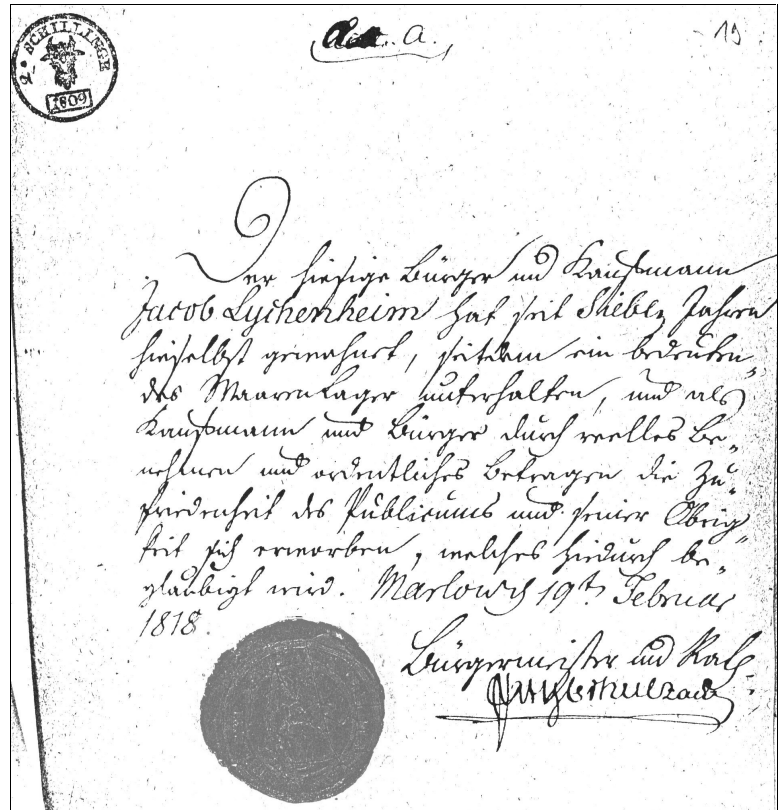 2. SCHILLINGE
1809
Lit. A.
19
Der hiesige Bürger und Kaufmann
Jacob Lychenheim hat seit Jahren
hieselbst gewohnet, seitdem ein bedeuten-
des Waarenlager unterhalten, und als
Kaufmann und Bürger durch reelles Be-
nehmen und ordentliches Betragen die Zu-
friedenheit des Publicums und seiner Obrig-
keit sich erworben, welches hiedurch be-
glaubigt wird. Marlow d 19t. Februar
1818.
Bürgermeister und Rath